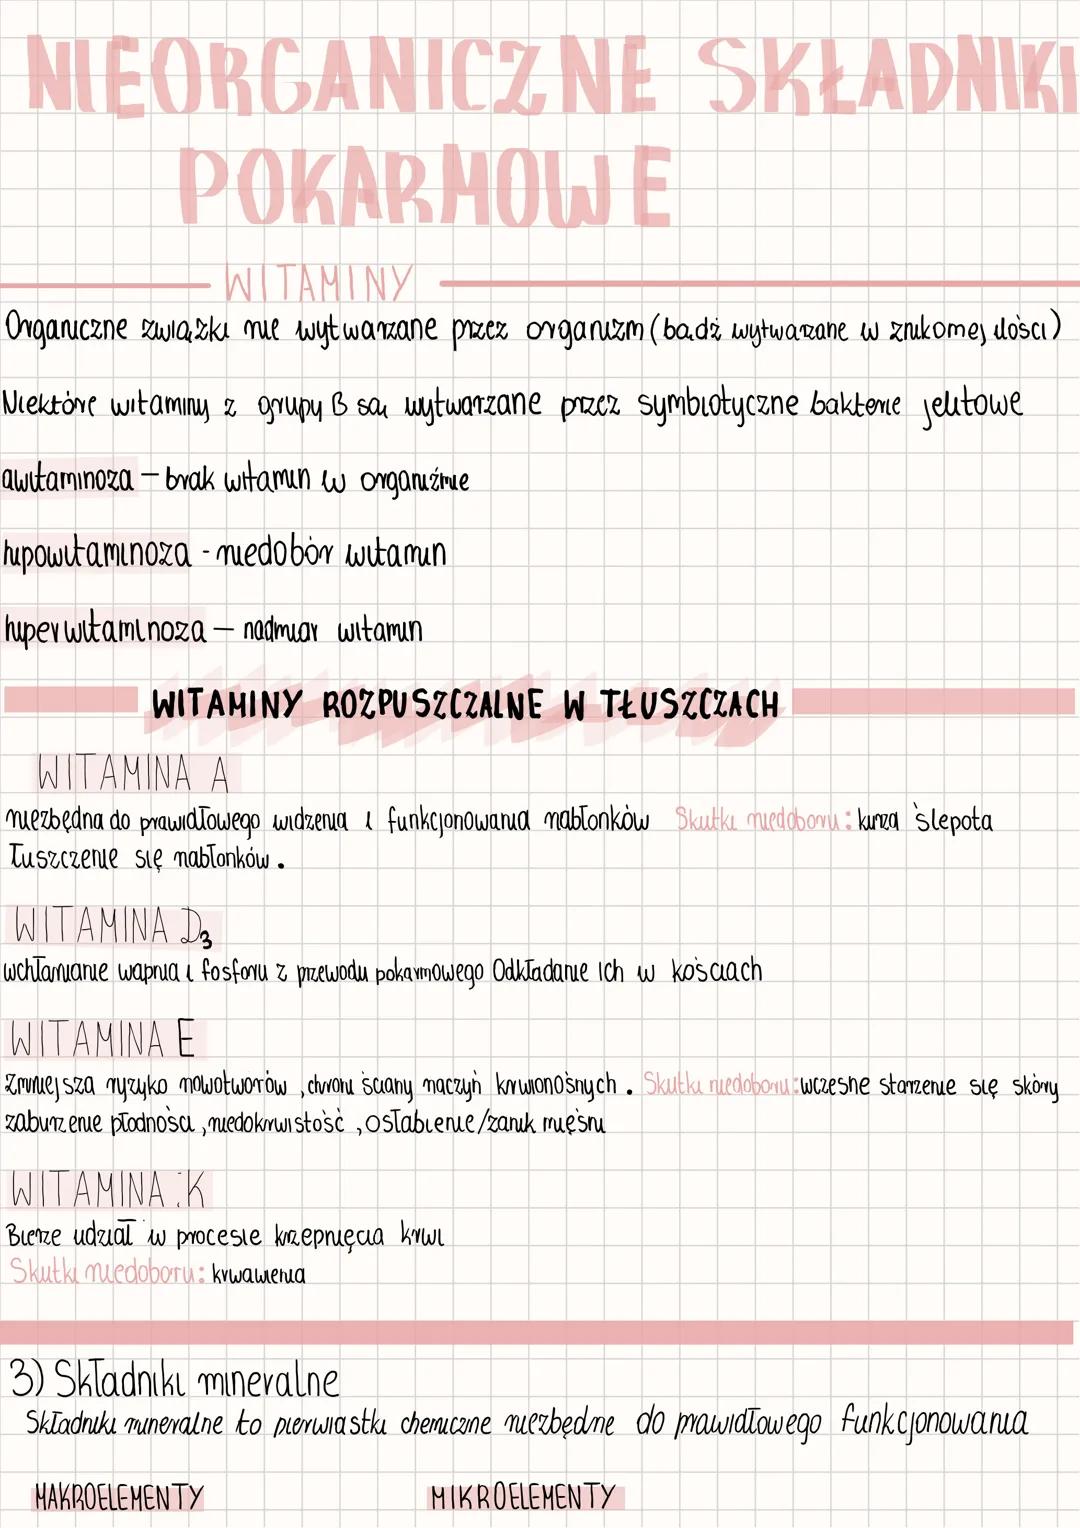 NIEORGANICZNE SKŁADNIKI
POKARMOWE
WITAMINY
Organiczne związki nie wytwarzane przez organizm (bądź wytwarzane w znikomej ilości)
Niektóre witaminy z grupy B są wytwarzane przez symbiotyczne bakterie jelitowe
awitaminoza – brak witamin w organiźmie
hipowitaminoza - niedobór witamin
hiperwitaminoza – nadmiar witamin
WITAMINY ROZPUSZCZALNE W TŁUSZCZACH
WITAMINA A
niezbędna do prawidłowego widzenia i funkcjonowania nabłonków Skutki niedoboru: kurza ślepota
Łuszczenie się nabłonków.
WITAMINA D3
wchłanianie wapnia i fosforu z przewodu pokarmowego Odkładanie ich w kościach
WITAMINA E
Zmniejsza ryzyko nowotworów, chroni ściany naczyń krwionośnych. Skutki niedoboru: wczesne starzenie się skóry
zaburzenie płodności, niedokrwistość, osłabienie/zanik mięśni
WITAMINA K
Bierze udział w procesie krzepnięcia krwi
Skutki niedoboru: krwawienia
3) Składniki mineralne
Składniki mineralne to pierwiastki chemiczne niezbędne do prawidłowego funkcjonowania
MAKROELEMENTY MIKROELEMENTY